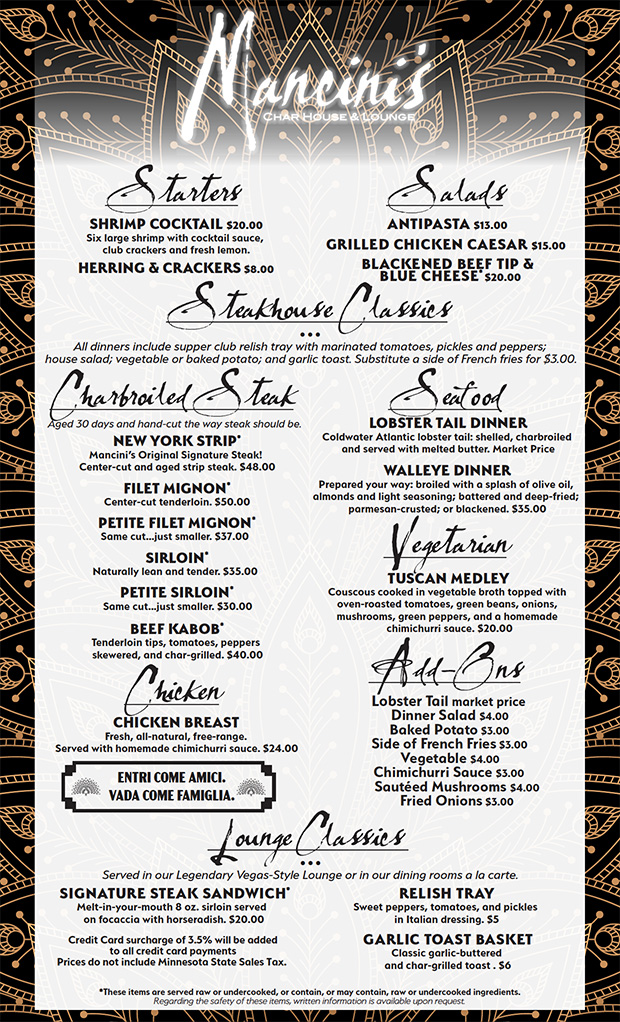 Mancini's
CHAR HOUSE & LOUNGE
Starters
SHRIMP COCKTAIL $20.00
Six large shrimp with cocktail sauce,
club crackers and fresh lemon.
HERRING & CRACKERS $8.00
Salads
ANTIPASTA $13.00
GRILLED CHICKEN CAESAR $15.00
BLACKENED BEEF TIP &
BLUE CHEESE* $20.00
Steakhouse Classics
•••
All dinners include supper club relish tray with marinated tomatoes, pickles and peppers;
house salad; vegetable or baked potato; and garlic toast. Substitute a side of French fries for $3.00.
Charbroiled Steak
Aged 30 days and hand-cut the way steak should be.
NEW YORK STRIP*
Mancini's Original Signature Steak!
Center-cut and aged strip steak. $48.00
FILET MIGNON*
Center-cut tenderloin. $50.00
PETITE FILET MIGNON*
Same cut...just smaller. $37.00
SIRLOIN*
Naturally lean and tender. $35.00
PETITE SIRLOIN*
Same cut...just smaller. $30.00
BEEF KABOB*
Tenderloin tips, tomatoes, peppers
skewered, and char-grilled. $40.00
Chicken
CHICKEN BREAST
Fresh, all-natural, free-range.
Served with homemade chimichurri sauce. $24.00
ENTRI COME AMICI.
VADA COME FAMIGLIA.
Seafood
LOBSTER TAIL DINNER
Coldwater Atlantic lobster tail: shelled, charbroiled
and served with melted butter. Market Price
WALLEYE DINNER
Prepared your way: broiled with a splash of olive oil,
almonds and light seasoning; battered and deep-fried;
parmesan-crusted; or blackened. $35.00
Vegetarian
TUSCAN MEDLEY
Couscous cooked in vegetable broth topped with
oven-roasted tomatoes, green beans, onions,
mushrooms, green peppers, and a homemade
chimichurri sauce. $20.00
Add-Ons
Lobster Tail market price
Dinner Salad $4.00
Baked Potato $3.00
Side of French Fries $3.00
Vegetable $4.00
Chimichurri Sauce $3.00
Sautéed Mushrooms $4.00
Fried Onions $3.00
Lounge Classics
•••
Served in our Legendary Vegas-Style Lounge or in our dining rooms a la carte.
SIGNATURE STEAK SANDWICH*
Melt-in-your-mouth 8 oz. sirloin served
on focaccia with horseradish. $20.00
Credit Card surcharge of 3.5% will be added
to all credit card payments
Prices do not include Minnesota State Sales Tax.
RELISH TRAY
Sweet peppers, tomatoes, and pickles
in Italian dressing. $5
GARLIC TOAST BASKET
Classic garlic-buttered
and char-grilled toast . $6
*These items are served raw or undercooked, or contain, or may contain, raw or undercooked ingredients.
Regarding the safety of these items, written information is available upon request.